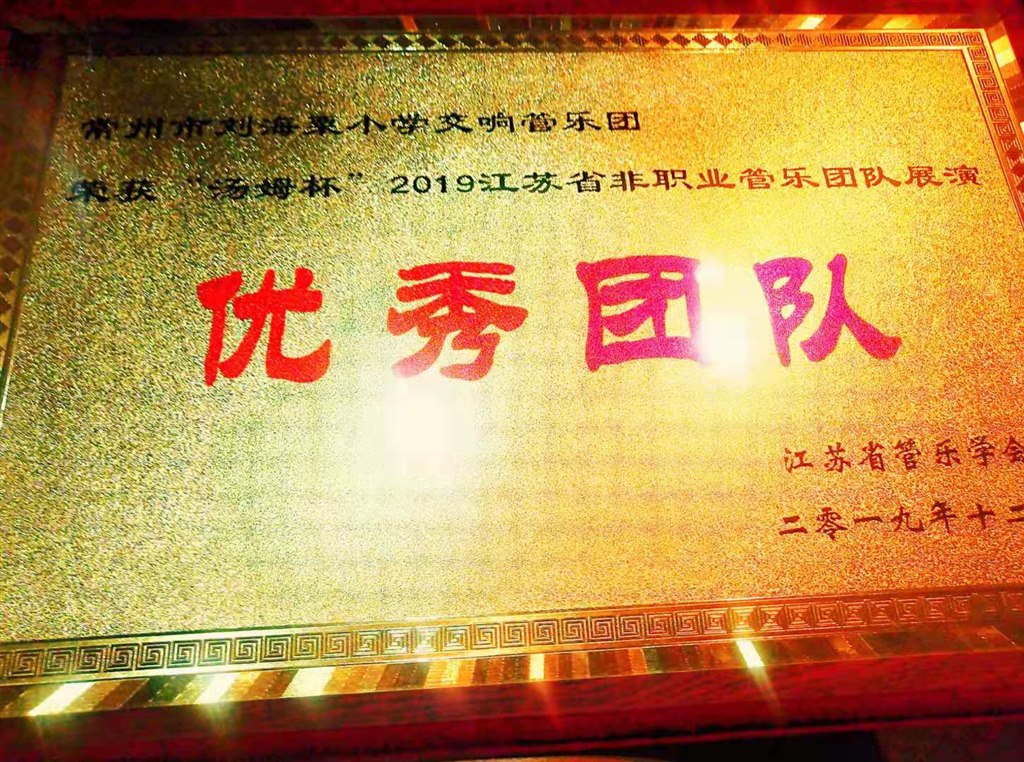 常州市刘海粟小学交响管乐团
荣获“汤姆杯”2019江苏省非职业管乐团队展演
优秀团队
江苏省管乐学会
二零一九年十二